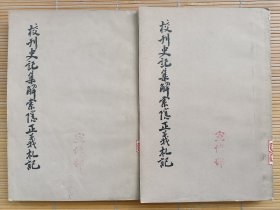 校刊史記集解索隱正義札記
校刊史記集解索隱正義札記